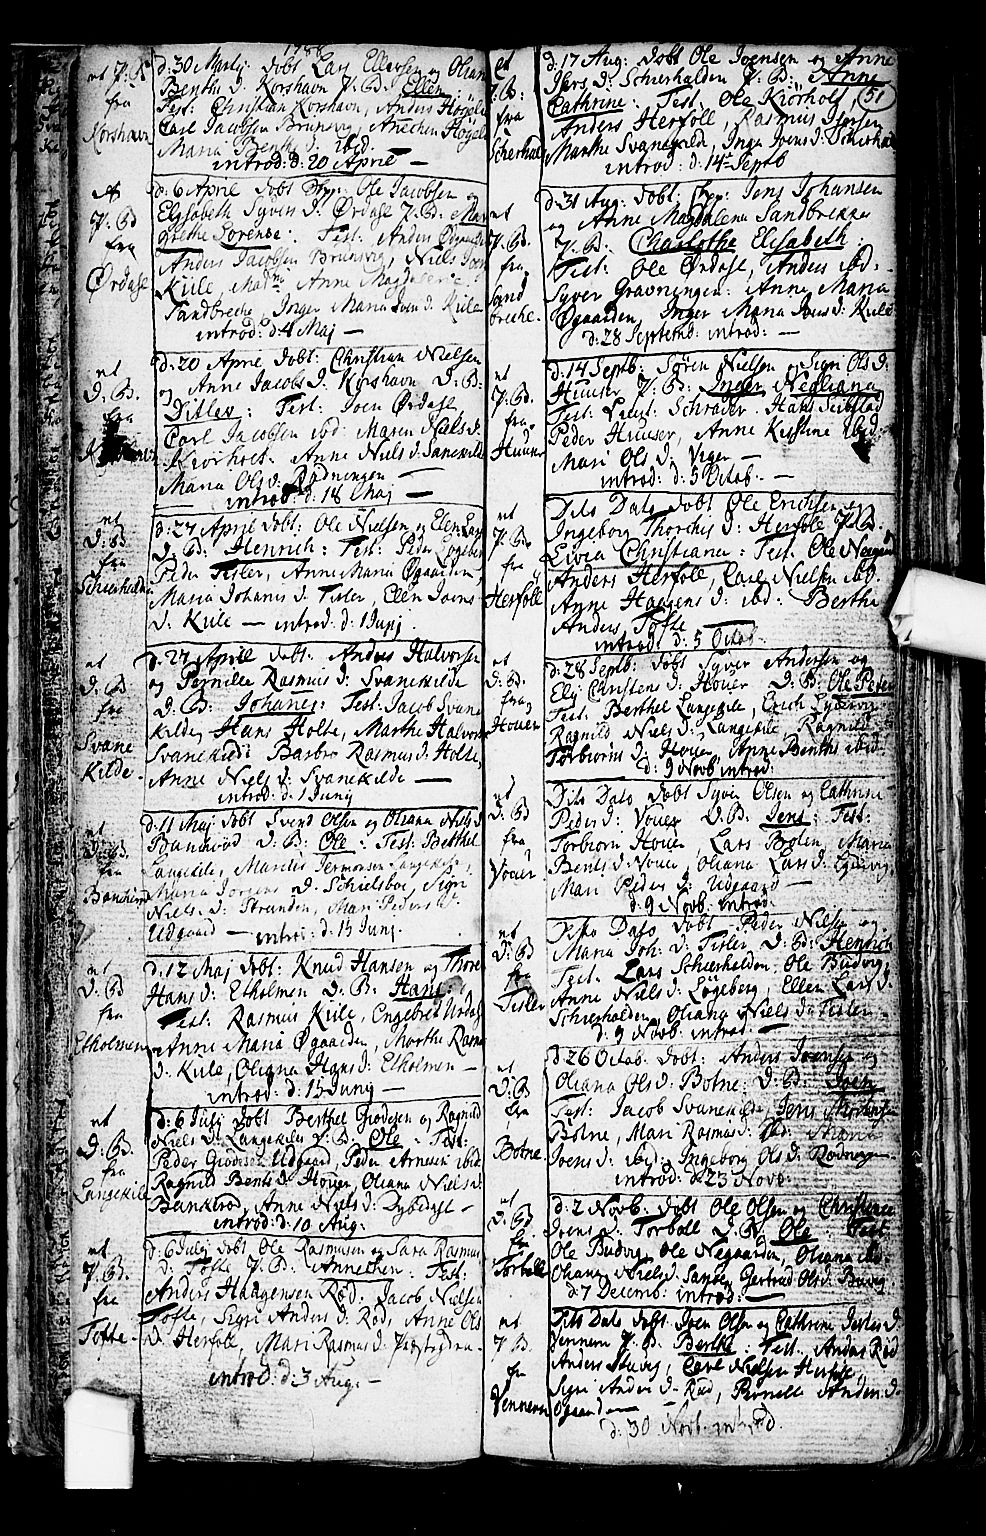 1788
et P: B
fra
Korshavn
d: 30 Martij döbt Lars Ellevsen og Oliana
Benths d: Korshavn P: B: Ellen
Test: Christian Korshavn, Anders Högöle
Carl Jacobsen Brunsvig, Anechen Högöle
Maria Benths d: ibid:
introd: d: 20 April —
et
P: B
fra
Ørdahl
d: 6 April döbt Ole Jacobsen og
Elisabeth Syvers d: Ørdahl P: B: Mar
grethe Sorense: Test: Anders
Anders Jacobsen Brunsvig, Niels Joen
Kiile, Anne Magdalene
Sandbreche, Inger Maria Joens d: Kiile
introd: d: 4 Maj —
et
D: B:
fra
d: 20 April döbt: Christian Nielsen
og Anne Jacobs d: Korshavn D: B:
Ditlev: Test: Joen Ørdahl
Carl Jacobsen ibd: Maren Niels d:
Kiörholt, Anne Niels d: Svanekilde
Maria Ols d: Rødningen —
introd: d: 18 Maj —
et
D: B
fra
Schierholden
d: 27 April döbt: Ole Nielsen og Elen Lars
D: B: Henrich: Test: Peder Lögeberg
Peder Tisler, Anne Maria Øgaarden,
Maria Johanis d: Tisler, Ellen Joens
d: Kiile — introd: d: 1 Junj.
et
D: B
fra
Svane
Kilde
d: 27 April döbt: Anders Halvorsen
og Pernille Rasmus d: Svanekilde
D: B: Johannes: Test: Jacob Svane
kilde, Hans Holte, Marthe Halvors
Svanekilde Barbro Rasmus d: Holte,
Anne Niels d: Svanekilde —
introd: d: 1 Junij
et
D: B.
fra
d: 11 Maj döbt Svend Olsen og Oliana Niels d
D: B: Ole: Test: Berthel
Langekile,
Maria Jörgens d: Schielsboe, Sigri
Niels d: Stranden, Mari Peders d:
Udgaard — introd: d: 15 Junj.
et
D: B
fra
Etholmen
d: 12 Maj döbt: Knud Hansen og Thore
Hans d: Etholmen D: B: Hans:
Test: Rasmus Kiile, Engebret
Anne Maria Øgaarden, Marthe Rasm
d: Kiile, Oliana Hans d: Etholmen —
introd: d: 15 Junij —
et
D: B.
fra
Langekile
d: 6 Julij döbt Berthel Giodesen og Ragnild
Niels d: Langekile D: B: Ole — Test:
Peder Giodesen Udgaard, Peder Arnesen ibid:
Ragnild Bents d: Houer, Oliana Niels d:
Anne Niels d: Dybedahl —
introd: d: 10 Aug:
et
P: B.
fra
Tofte
d: 6 Julij döbt Ole Rasmusen og Sara Rasmus
d: Tofte P: B: Annechen: Test:
Anders Haagensen Röd: Jacob Nielsen
Tofte, Sigri Anders d: Röd, Anne Ols
d: Herföll, Mari Rasmus d:
introd: d: 3 Aug: —
et
P: B:
fra
Schierhold
d: 17 Aug: döbt Ole Joensen og Anne
Ivers d: Schierholden P: B: Anne
Cathrine: Test: Ole Kiörholt, 51
Anders Herföll, Rasmus Iversen
Marthe Svanekild, Inga Joens d: Schierhold
introd: d: 14 Septb
et
P: B.
fra
Sand
breche
d: 31 Aug: döbt: Jens Johansen
og Anne Magdalena Sandbrekke
P: B: Charlothe Elisabeth:
Test: Ole Ørdahl, Anders ibd:
Syver Gravningen: Anne Maria
Øgaarden, Inger Maria Joens d: Kiile
d: 28 Septemb: introd: —
et
P: B.
fra
Huuser
d: 14 Septb: Søren Nielsen og Sigri Ols d:
Huuser P: B: Inger Negliana
Test: Schrøder, Hans
Peder Huuser, Anne Kirstine ibid:
Mari Ols d: Viger —
introd: d: 5 Octob: —
et
P: B.
fra
Herföll
Dito Dato döbt Ole Erichsen og
Ingeborg Thorchis d: Herföll P: B:
Livia Christiana: Test: Ole Neegaar
Anders Herföll, Carl Nielsen ibd:
Anne Haagens d: ibd: Berthe
Anders Tofte
introd: d: 5 Octob.
et
D: B:
fra
Houer
d: 28 Septb: döbt Syver Andersen og
Elj Christens d: Houer D: B: Ole Peter
Test: Berthel Langekile, Erich
Ragnild Niels d: Langekile Ragnild
Torbiörns d: Houer, Anne Benths ibid:
d: 9 Novb introd:
et
D: B
fra
Vouer
Dito Dato döbt Syver Olsen og Cathrine
Peders d: Vouer D: B: Jens: Test:
Torbiorn Houer, Lars Botten, Maria
Bents d: Vouer, Oliana Lars d:
Mari Peders d: Udgaard —
d: 9 Novb. introd:
et
D: B
fra
Tisler
Dito Dato döbt — Peder Nielsen og
Maria Joh: d: Tisler, D: B: Henrich
Test: Lars Schierholden, Ole Budvig,
Anne Niels d: Lögeberg, Ellen Lars d:
Schierholden, Oliana Niels d: Tisler —
d: 9 Novb: introd: —
et
D: B
fra
Botne
d: 26 Octob. döbt: Anders Joensen og
Oliana Ols d: Botne: D: B: Joen:
Test: Jacob Svanekilde, Jens Mortensen
Botne, Mari Rasmus d: ibd: Maria
Joens d: ibid: Ingeborg Ols d: Rødningen
introd: d: 23 Novb:
et
D: B.
fra
Torbøll
d: 2 Novb: döbt Ole Olsen og Christiana
Jens d: Torbøll D: B: Ole: Test:
Ole Budvig, Ole Negaarden, Oliana ibd
Oliana Niels d: Sandøe, Gertrud Ols d: Buvig
d: 7 Decemb: introd: —
et
P: B
fra
Venneren
Dito Dato döbt Joen Olsen og Cathrine Jens d:
Venneren P: B: Berthe Test: Anders Röd
Anders Stuvig, Carl Nielsen Herföll,
Sigri Anders d: Röd, Pernelle Anders d:
Øgaarden —
d: 30 Novb. introd.